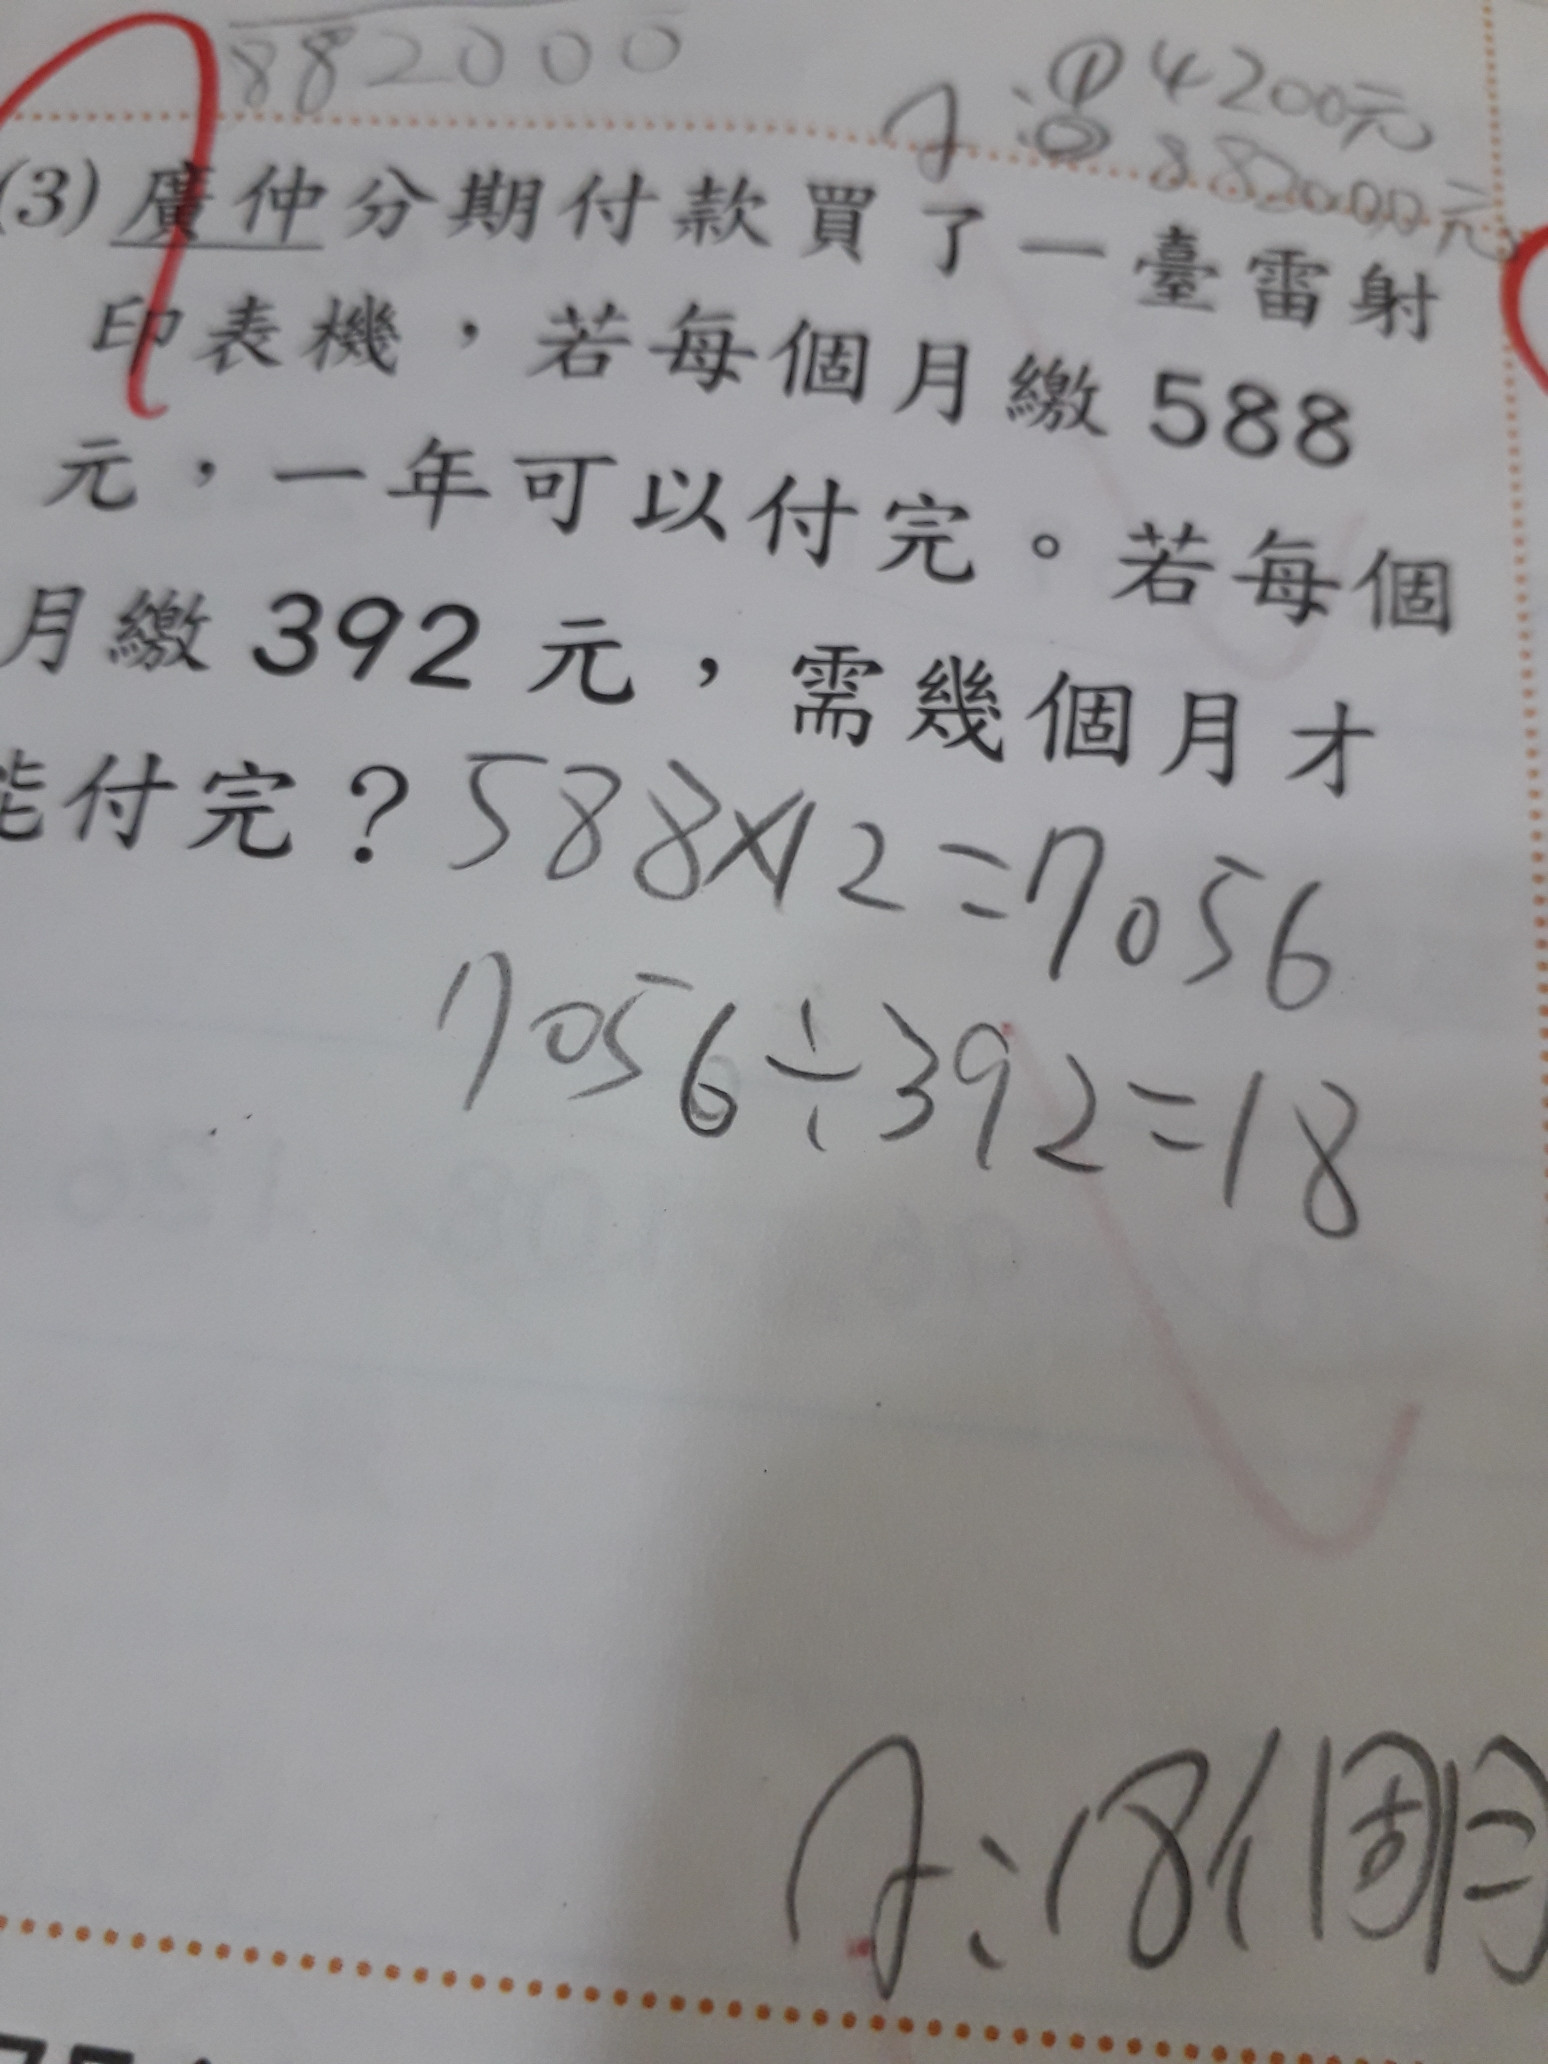 882000
A:①4200元
②882000元
(3)廣仲分期付款買了一臺雷射
印表機,若每個月繳588
元,一年可以付完。若每個
月繳392元,需幾個月才
能付完?
588×12=7056
7056÷392=18
A:18個月